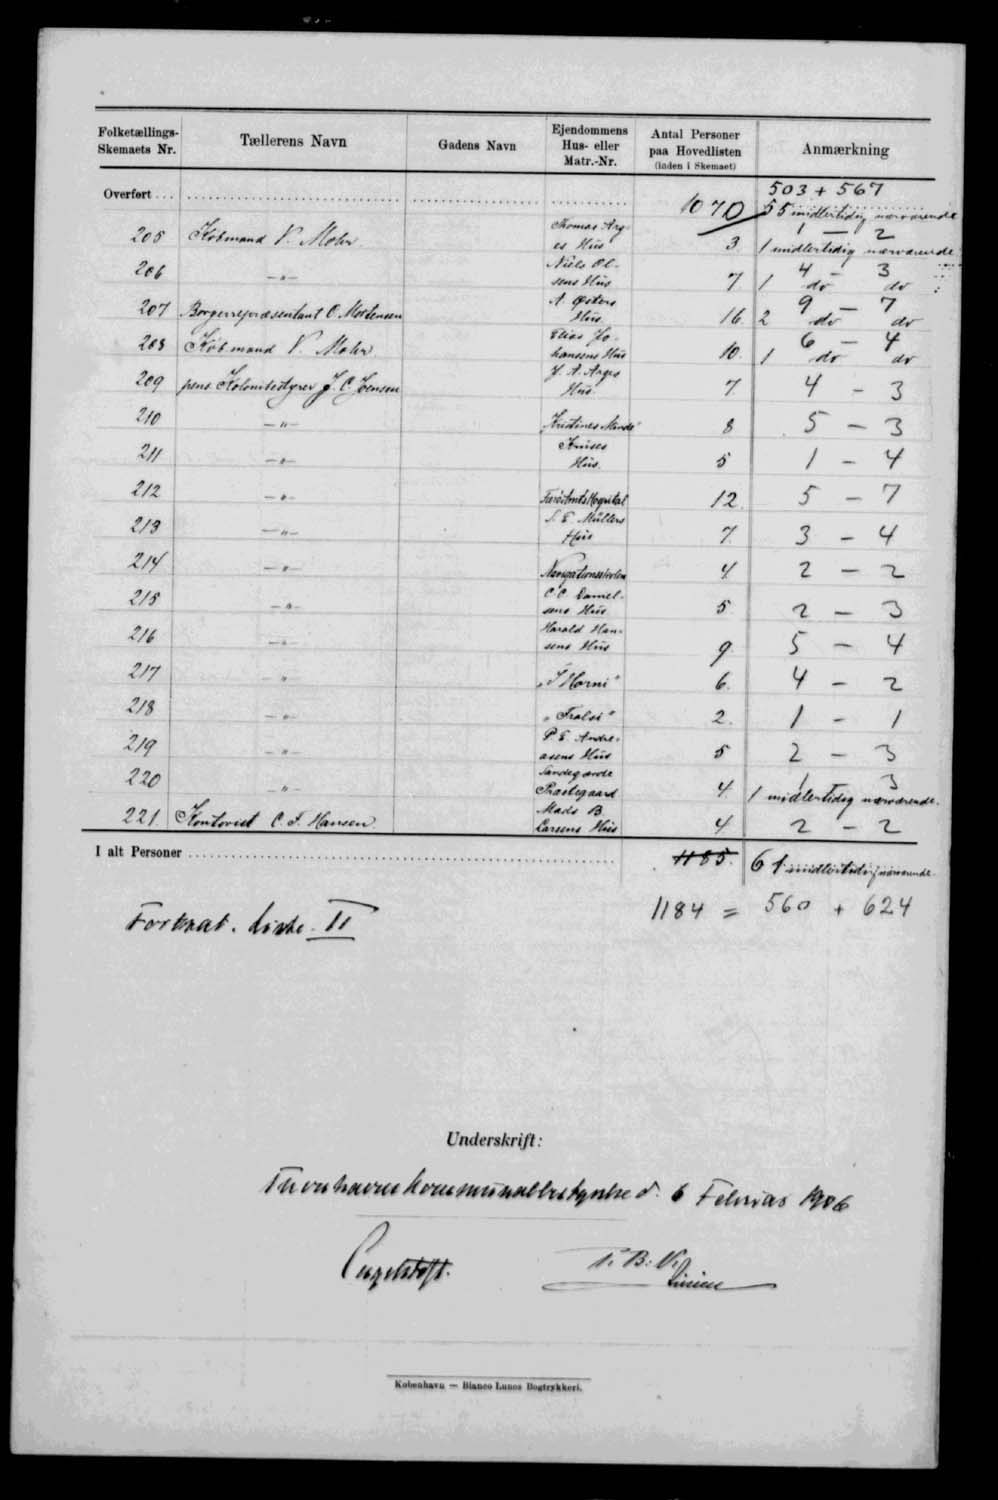 Folketællings-Skemaets Nr. Tællerens Navn Gadens Navn Ejendommens Hus- eller Matr.-Nr. Antal Personer paa Hovedlisten (inden i Skemaet) Anmærkning
Overført 1070 503 + 567
55 midlertidig nærværende
205 Købmand V. Mohr Thomas Arg-
es Hus 3 1 – 2
1 midlertidig nærværende
206 — " — Niels Ol-
sens Hus 7 4 – 3
1 do do
207 Borgerrepræsentant O. Mortensen A. Østers
Hus 16 9 – 7
2 do do
208 Købmand V. Mohr Elias Jo-
hansens Hus 10. 6 – 4
1 do do
209 pens. Kolonibestyrer J. C. Joensen J. A. Arges
Hus 7. 4 – 3
210 — " — Kristines Minde 8 5 – 3
211 — " — Hus. 5 1 – 4
212 — " — Færø Amts Hospital 12. 5 – 7
213 — " — S. E. Müllers
Hus 7. 3 – 4
214 — " — Navigationsskolen 4. 2 – 2
215 — " — C. C. Daniel-
sens Hus 5. 2 – 3
216 — " — Harald Han-
sens Hus 9. 5 – 4
217 — " — „I Horni" 6. 4 – 2
218 — " — 2. 1 – 1
219 — " — P. E. Andre-
asens Hus 5 2 – 3
220 — " — Sandegærde
Præstegaard 4. 1 – 3
1 midlertidig nærværende.
221. Kontorist C. F. Hansen Mads B.
Larsens Hus 4 2 – 2
I alt Personer 1185. 61 midlertidig nærværende
1184 = 560 + 624
Fortsat. Liste II
Underskrift:
Thorshavns Kommunalbestyrelse d. 6 Februar 1906
Engelstoft.
Kobenhavn — Bianco Lunos Bogtrykkeri.